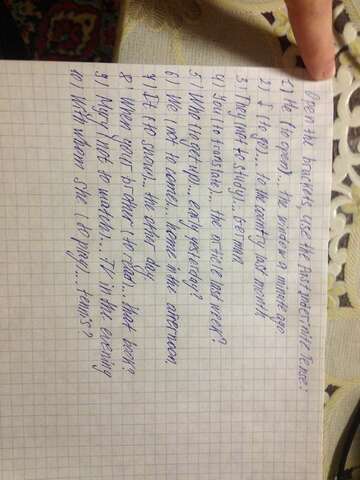 Open the brackets use the Past Indefinite Tense:
1) He (to open)... the window a minute ago
2) I (to go)... to the country last month
3) They (not to study)... German
4) You (to translate)... the article last week?
5) Who (to get up)... early yesterday?
6) We (not to come)... home in the afternoon.
7) It (to snow)... the other day.
8) When your brother (to read)... that book?
9) Mary (not to watch)... TV in the evening
10) With whom she (to play)... tennis?